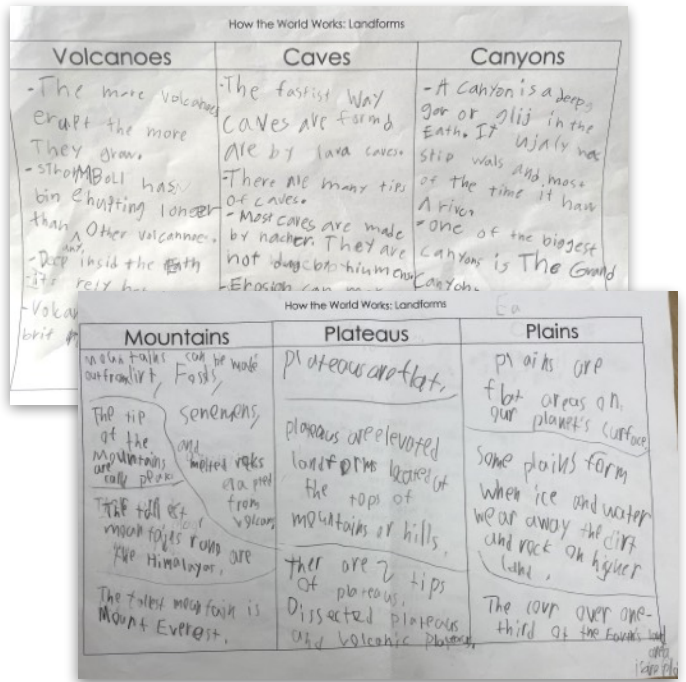 How the World Works: Landforms
Volcanoes
-The more volcanoes
erupt the more
They grow.
-SThoMBoll has
bin ehupting longer
than any Other volcannoe.
-Deep insid the Eath
-it's rely
-Volcan
brit
Caves
-The fastist way
caves are formd
are by lava caves.
-There are many tips
of caves.
-Most caves are made
by nacher. They are
not dug by hiumens
-Erosion can
Canyons
-A canyon is a deep
gor or glij in the
Eath. It ujaly has
stip wals and most
of the time it haw
A river.
-one of the biggest
canyons is The Grand
Canyon.
How the World Works: Landforms
Mountains
mountains can be made
out from dirt, Fossls,
Senemens,
and
melted roks
erapted
from
volcans
The tip
of the
mountains
are
cally peaks
The tallest
mountains rang are
the Himalayas.
The tallest mountain is
Mount Everest.
Plateaus
plateaus are flat.
plateaus are elevated
landforms located at
the tops of
mountains or hills.
ther are 2 tips
of plateaus.
Dissected plateaus
and volcanic plateaus.
Plains
plains are
flat areas on
our planet's surface
Some plains form
when ice and water
wear away the dirt
and rock on higher
land.
The covr over one-
third of the Earth's land
area